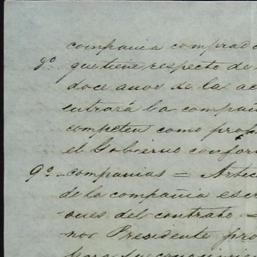 compañia comprado
9º que tiene respecto de
doce años de la ac
entrará la compañ
competen como prop
el Gobierno confor
9º - compañias = Artic
de la compañia es
ones del contrato.
nor Presidente pro